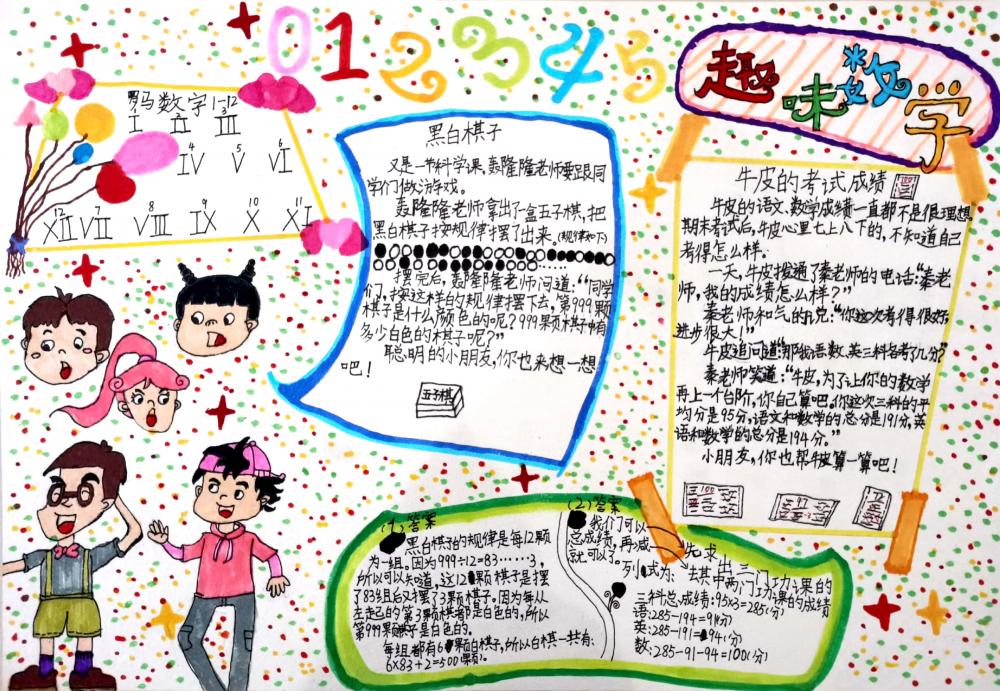 0 1 2 3 4 5
趣味数学
罗马数字1-12
I II III
4 5 6
IV V VI
12 7 8 9 10 11
XII VII VIII IX X XI
黑白棋子
又是一节科学课,轰隆隆老师要跟同
学们做游戏。
轰隆隆老师拿出了一盒五子棋,把
黑白棋子按规律摆了出来。(规律如下)
摆完后,轰隆隆老师问道:“同学
们,按这样的规律摆下去,第999颗
棋子是什么颜色的呢?999颗棋子中有
多少白色的棋子呢?”
聪明的小朋友,你也来想一想
吧!
五子棋
牛皮的考试成绩
牛皮的语文、数学成绩一直都不是很理想,
期末考试后,牛皮心里七上八下的,不知道自己
考得怎么样。
一天,牛皮拨通了秦老师的电话:“秦老
师,我的成绩怎么样?”
秦老师和气的说:“你这次考得很好,
进步很大!”
牛皮追问道:“那我语、数、英三科各考了几分?”
秦老师笑道:“牛皮,为了让你的数学
再上一个台阶,你自己算吧。你这次三科的平
均分是95分,语文和数学的总分是191分,英
语和数学的总分是194分。”
小朋友,你也帮牛皮算一算吧!
(1)答案
黑白棋子的规律是每12颗
为一组。因为999÷12=83……3,
所以可以知道,这12颗棋子是摆
了83组后又摆了3颗棋子。因为每从
左起的第3颗棋都是白色的,所以
第999颗棋子是白色的。
每组都有6颗白棋子,所以白棋一共有:
6×83+2=500(颗)。
(2)答案
我们可以先求出三门功课的
总成绩,再减去其中两门功课的成绩
就可以了。列式为:
三科总成绩:95×3=285(分)
语:285-194=91(分)
英:285-191=94(分)
数:285-91-94=100(分)